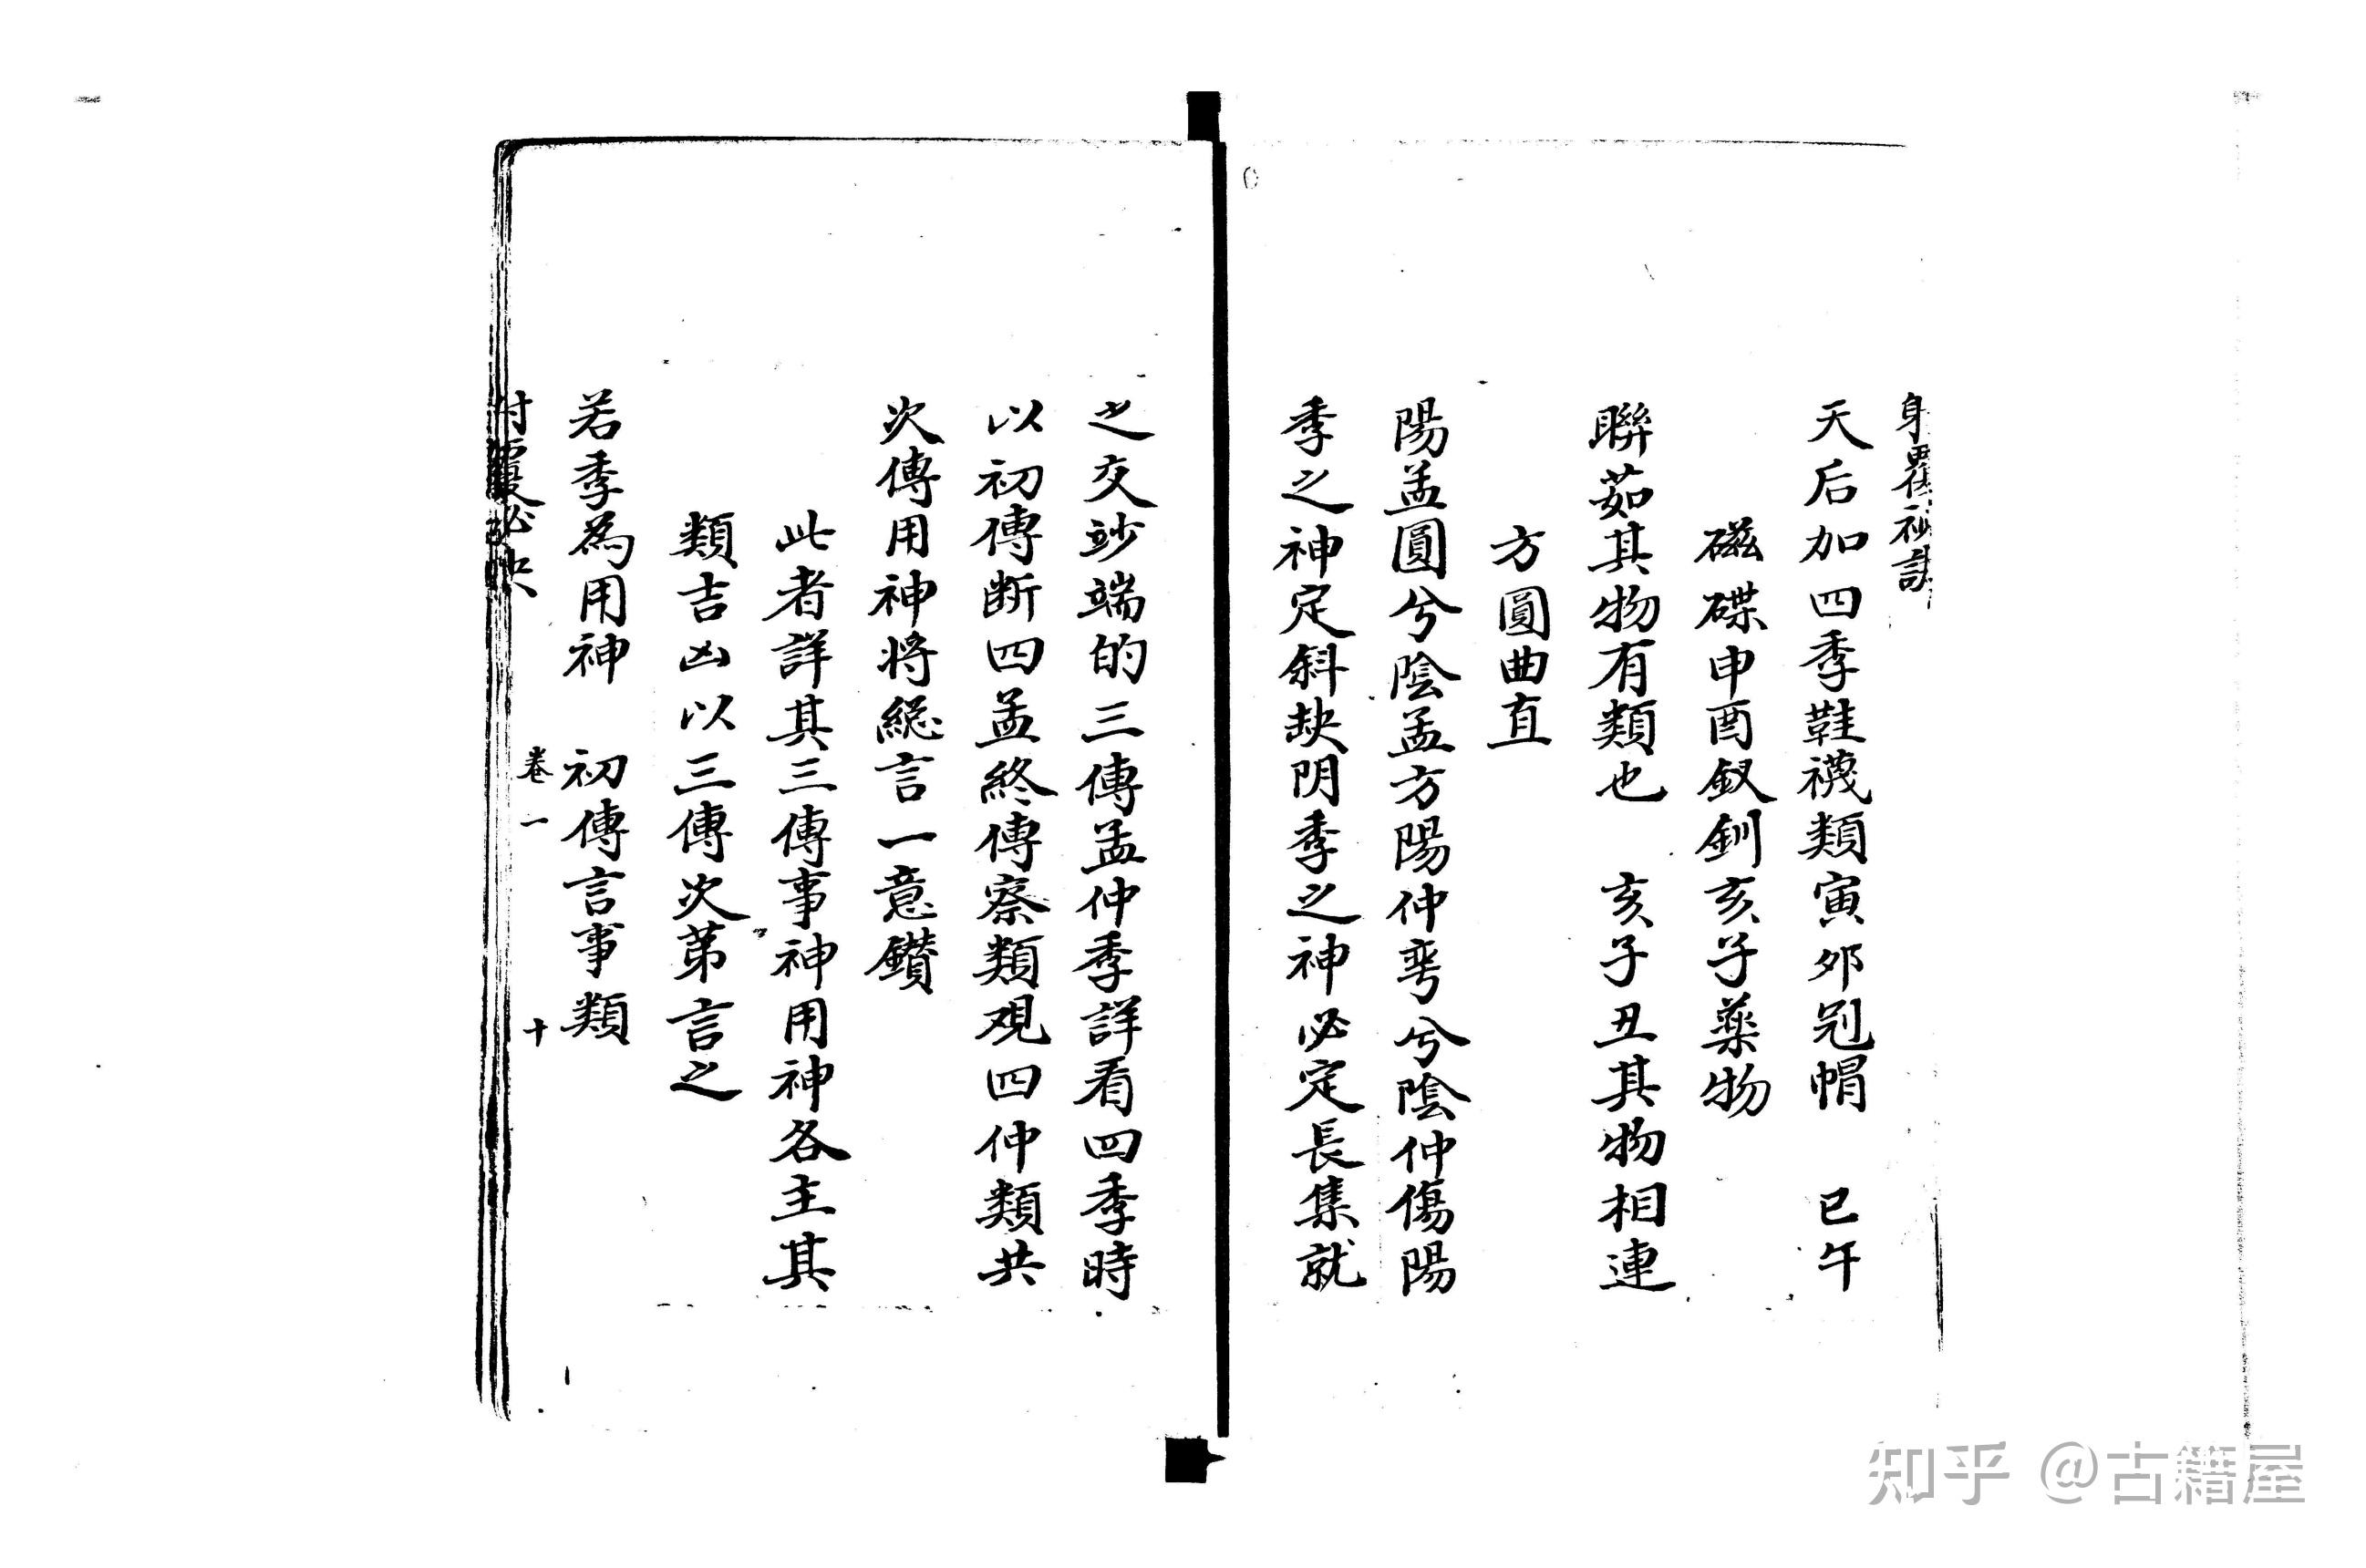 天后加四季鞋襪類寅夘冠帽　巳午
磁碟申酉釵釧亥子藥物
聯茹其物有類也　亥子丑其物相連
方圓曲直
陽孟圓兮陰孟方陽仲弯兮陰仲傷陽
季之神定斜缺阴季之神必定長集就
之交竗端的三傳孟仲季詳看四季時
以初傳断四孟終傳察類观四仲類共
次傳用神将緫言一意鑚
此者詳其三傳事神用神各主其
類吉凶以三傳次第言之
若季為用神　初傳言事類
卷一　十
知乎 @古籍屋